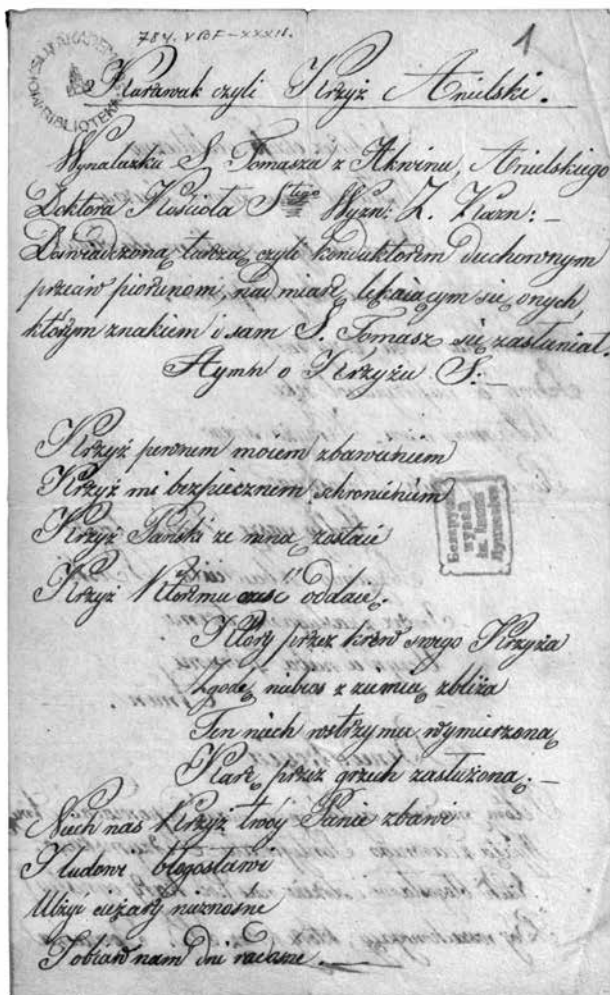 784. VBF-XXXII.
1
BIBLIOTEKA
Karawak czyli Krzyż Anielski.
Wynalazku S. Tomasza z Akwinu, Anielskiego
Doktora Kościoła Stego Wyzn: Z. Kazn: –
Doświadczoną tarczą czyli konduktorem duchownym
przeciw piorunom, nad miarę lękaiącym się onych,
którym znakiem i sam S. Tomasz się zasłaniał.
Hymn o Krzyżu S: –
Krzyż pewnem moiem zbawieniem
Krzyż mi bezpiecznem schronieniem
Krzyż Pański ze mną zostaie
Krzyż Któremu cześć oddaię.
Który przez krew swego Krzyża
Zgodę niebios z ziemią zbliża
Ten niech wstrzyma wymierzoną
Karę przez grzech zasłużoną. –
Niech nas Krzyż twóy Panie zbawi
I ludowi błogosławi
Ulżyi ciężary nieznosne
I obiaw nam dni radosne.